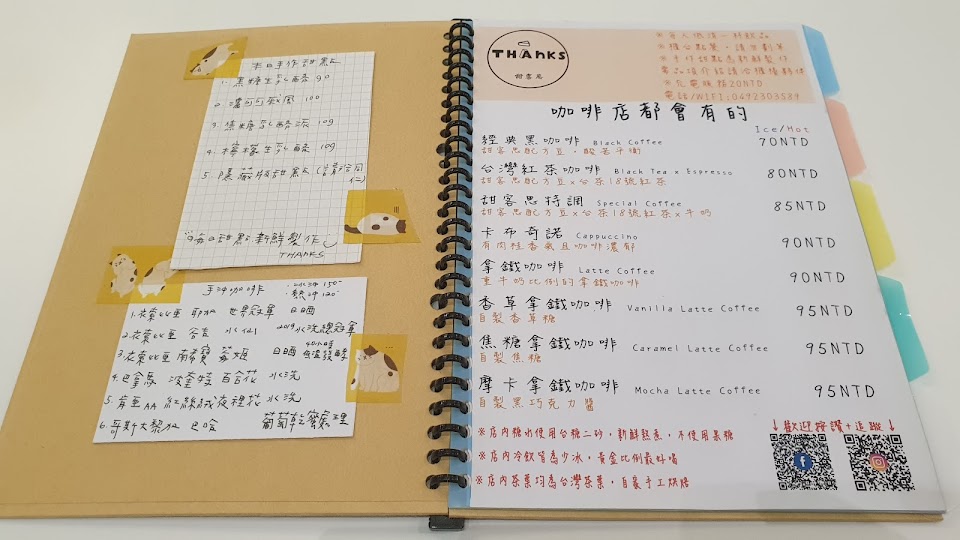 本日手作甜點
1. 黑糖生乳酪 90
2. 濃可可戚風 100
3. 焦糖乳酪派 109
4. 檸檬生乳酪 109
5. 隱藏版甜點
"每日甜點新鮮製作"
THANKS
手沖咖啡 ·冰沖150- ·熱沖120-
1. 衣索比亞 耶加 世界冠軍 日曬
2. 衣索比亞 谷吉 水仙 2019水洗總冠軍
3. 衣索比亞 日曬 低溫發酵
4. 巴拿馬 波奎特 百合花 水洗
5. 肯亞AA 紅絲絨夜裡花 水洗
6. 哥斯大黎加 巴哈 葡萄乾蜜處理
THANKS
甜客思
※每人低消一杯飲品
※櫃台點餐，請至劃單
※手作甜點為新鮮製作
電話/WIFI:0492303589
咖啡店都會有的
Ice/Hot
經典黑咖啡 Black Coffee 70NTD
甜客思配方豆，酸苦平衡
台灣紅茶咖啡 Black Tea x Espresso 80NTD
甜客思配方豆x台茶18號紅茶
甜客思特調 Special Coffee 85NTD
甜客思配方豆x台茶18號紅茶x牛奶
卡布奇諾 Cappuccino 90NTD
有肉桂香氣且咖啡濃郁
拿鐵咖啡 Latte Coffee 90NTD
重牛奶比例的拿鐵咖啡
香草拿鐵咖啡 Vanilla Latte Coffee 95NTD
自製香草糖
焦糖拿鐵咖啡 Caramel Latte Coffee 95NTD
自製焦糖
摩卡拿鐵咖啡 Mocha Latte Coffee 95NTD
自製黑巧克力醬
※店內糖水使用台糖二砂，新鮮熬煮，不使用果糖
※店內冷飲皆為少冰，黃金比例最好喝
※店內茶葉均為台灣茶葉，自展手工烘焙
↓歡迎按讚+追蹤↓